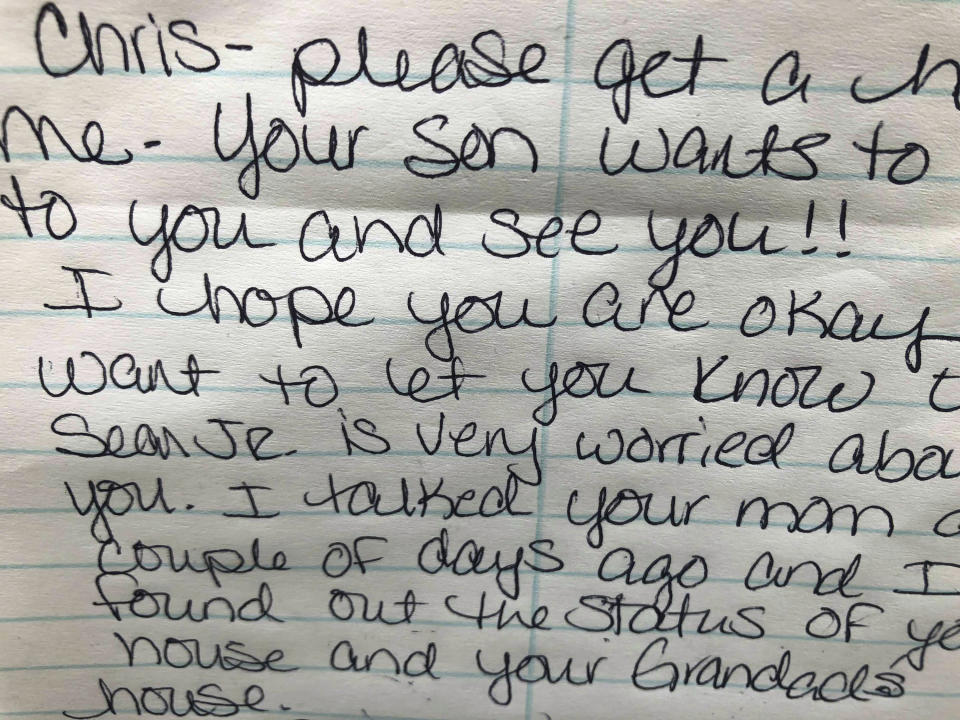 Chris- please get a h
me. Your son wants to
to you and see you!!
I hope you are okay
want to let you know t
Sean JR. is very worried abo
you. I talked your mom a
couple of days ago and I
found out the status of yo
house and your Grandad's
house.